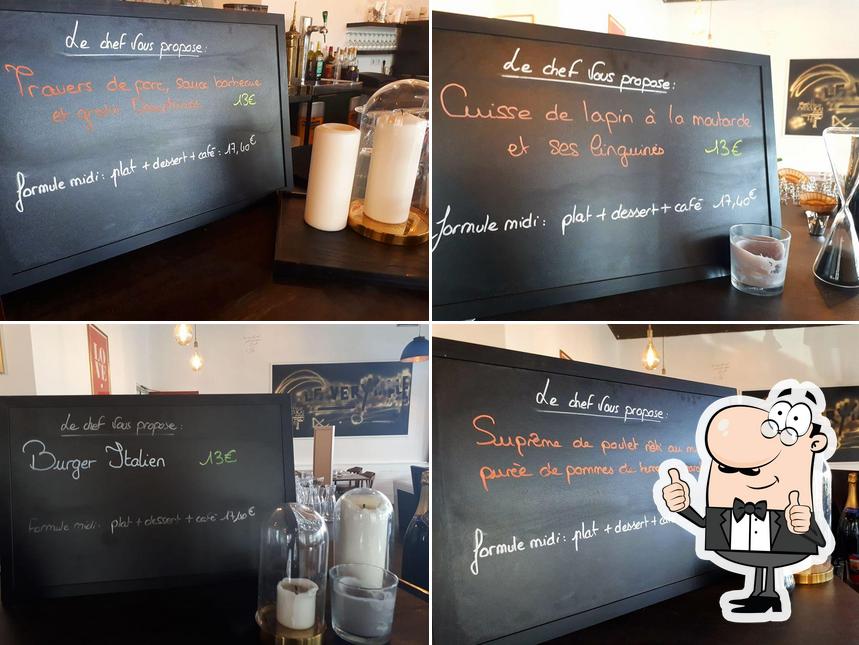 Le chef vous propose:
Travers de porc, sauce barbecue
et gratin Dauphinois 13€
formule midi: plat + dessert + café: 17,40€
Le chef vous propose:
Cuisse de lapin à la moutarde
et ses linguines 13€
formule midi: plat + dessert + café 17,40€
LOVE
LE VER
Le chef vous propose:
Burger Italien 13€
Formule midi: plat + dessert + café 17,40€
Le chef vous propose:
Suprême de poulet rôti au
purée de pommes de terre
formule midi: plat + dessert +